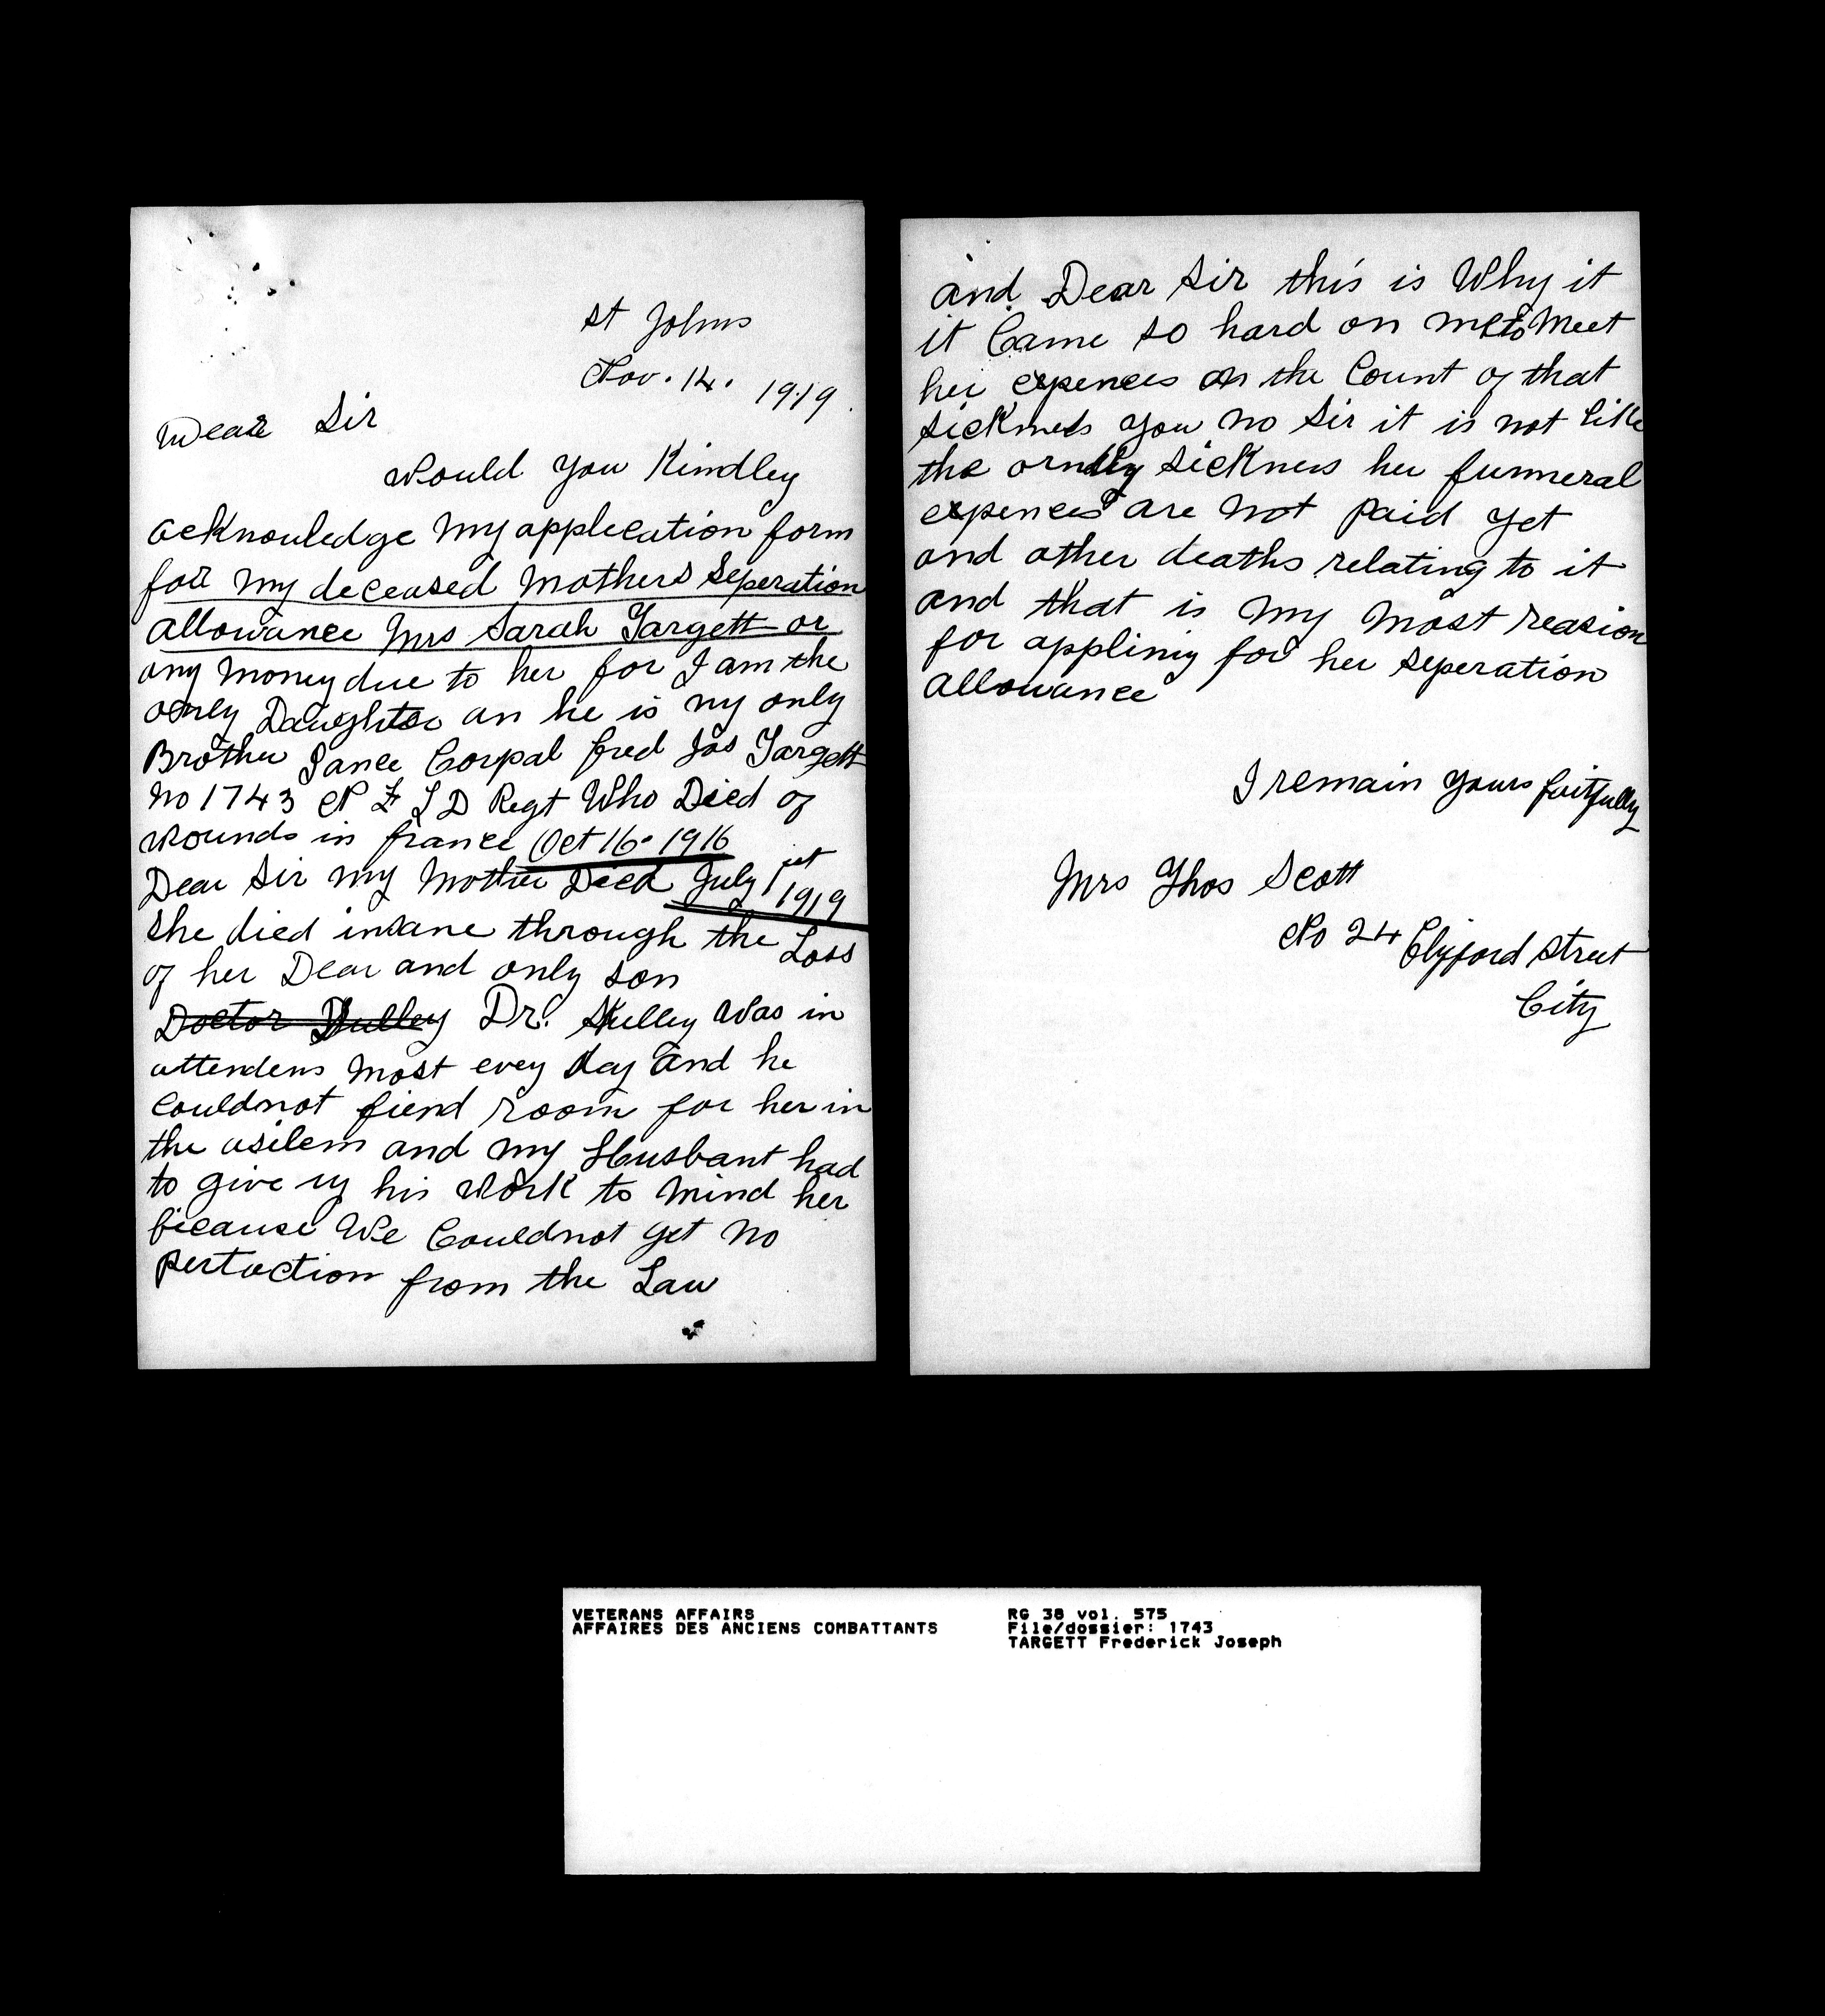 St Johns
Nov. 14. 1919.
Dear Sir
Would you Kindley
acknowledge my applecation form
for my deceased Mothers Seperation
allowance Mrs Sarah Targett or
any money due to her for I am the
only Daughter an he is my only
Brother Lance Corpal fred Jos Targett
no 1743 N F L D Regt Who Died of
wounds in france Oct 16 1916
Dear Sir my Mother Died July 1st 1919
She died insane through the Loss
of her Dear and only son
Doctor Dr. Kelley Was in
attendens most evey day and he
couldnot fiend room for her in
the asilem and my Husbant had
to give up his work to mind her
because We Couldnot get no
pertaction from the Law
and Dear Sir this is Why it
it Came so hard on me to Meet
her expences on the Count of that
sickness you no Sir it is not like
the sickness her funneral
expences are not paid yet
and other deaths relating to it
and that is my most reasion
for appliniy for her seperation
allowance
I remain yours faitfully
Mrs Thos Scott
No 24 Clyford Street
City
VETERANS AFFAIRS
AFFAIRES DES ANCIENS COMBATTANTS
RG 38 vol. 575
File/dossier: 1743
TARGETT Frederick Joseph